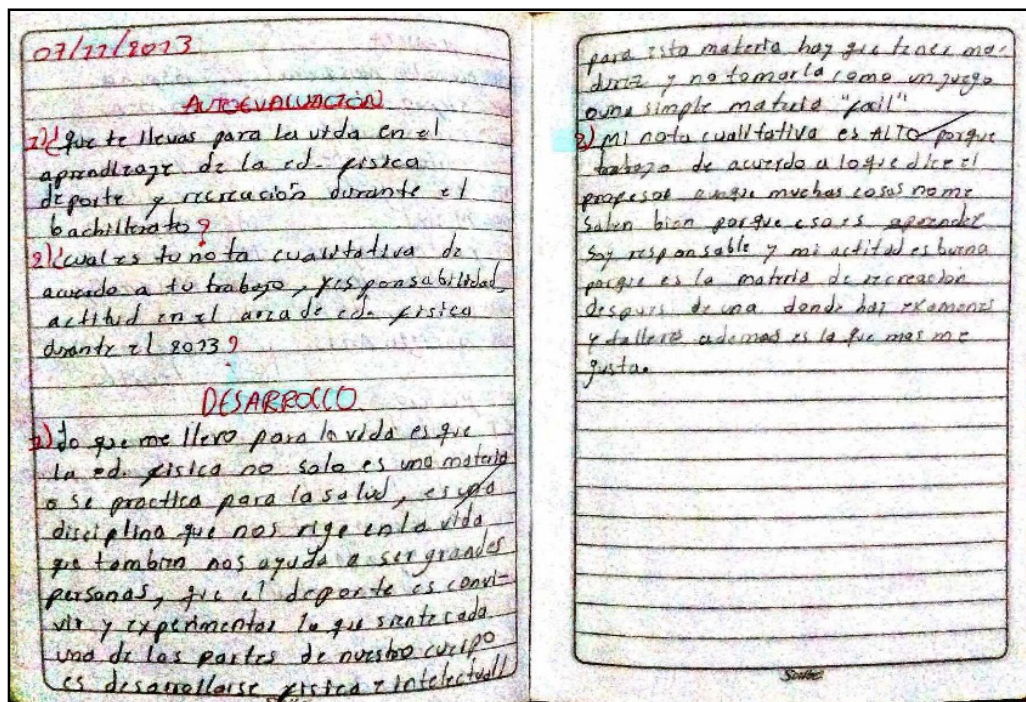 07/11/2013
AUTOEVALUACIÓN
1) ¿que te llevas para la vida en el
aprendizaje de la ed. fisica
deporte y recreación durante el
bachillerato?
2) ¿cual es tu nota cualitativa de
acuerdo a tu trabajo, responsabilidad
actitud en el area de ed. fisica
durante el 2013?
DESARROLLO
1) lo que me llevo para la vida es que
la ed. fisica no solo es una materia
o se practica para la salud, es una
disciplina que nos rige en la vida
que tambien nos ayuda a ser grandes
personas, que el deporte es convi-
vir y experimentar lo que siente cada
una de las partes de nuestro cuerpo
es desarrollarse fisica e intelectuall
para esta materia hay que tener ma-
durez y no tomarla como un juego
o una simple materia "facil"
2) mi nota cualitativa es ALTO porque
trabajo de acuerdo a lo que dice el
profesor aunque muchas cosas no me
salen bien porque eso es aprender
soy responsable y mi actitud es buena
porque es la materia de recreación
despues de una donde hay examenes
y talleres ademas es la que mas me
gusta.
Scribe